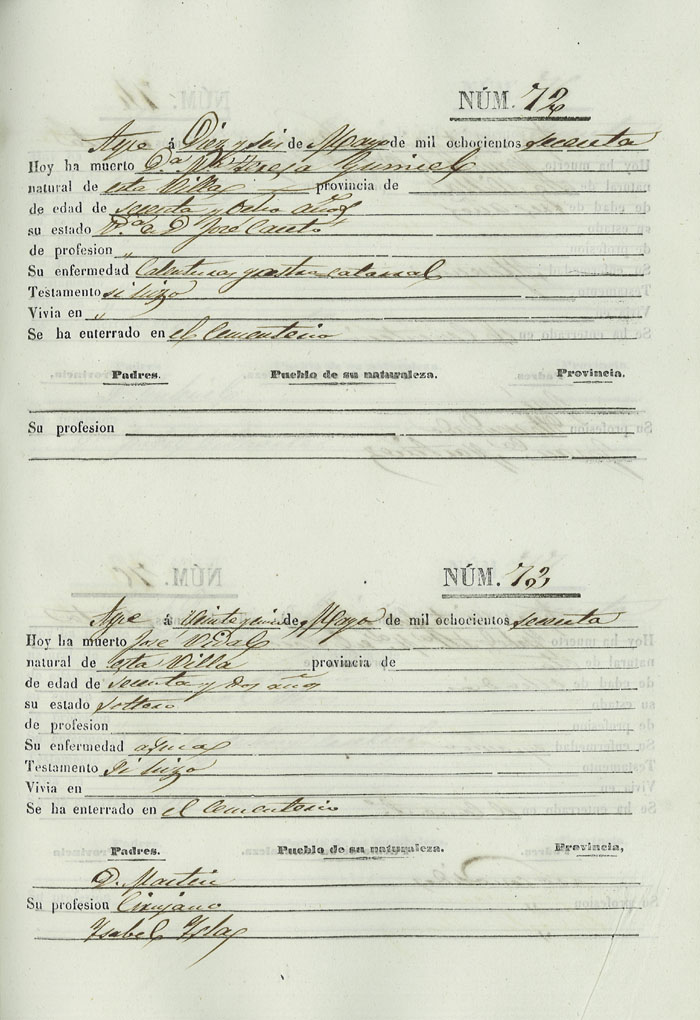 NÚM. 72
Aspe á Diez y seis de Mayo de mil ochocientos sesenta
Hoy ha muerto D.ª M.ª Teresa
natural de esta Villa provincia de
de edad de sesenta y ocho años
su estado V.da de D. José
de profesion „
Su enfermedad Calenturas gastro catarral
Testamento si hizo
Vivia en „
Se ha enterrado en el Cementerio
Padres. Pueblo de su naturaleza. Provincia.
Su profesion
NÚM. 73
Aspe á de Mayo de mil ochocientos sesenta
Hoy ha muerto José Vidal
natural de esta Villa provincia de
de edad de sesenta y dos años
su estado soltero
de profesion
Su enfermedad asma
Testamento si hizo
Vivia en
Se ha enterrado en el Cementerio
Padres. Pueblo de su naturaleza. Provincia,
D. Martin
Su profesion Cirujano
Ysabel Ysla